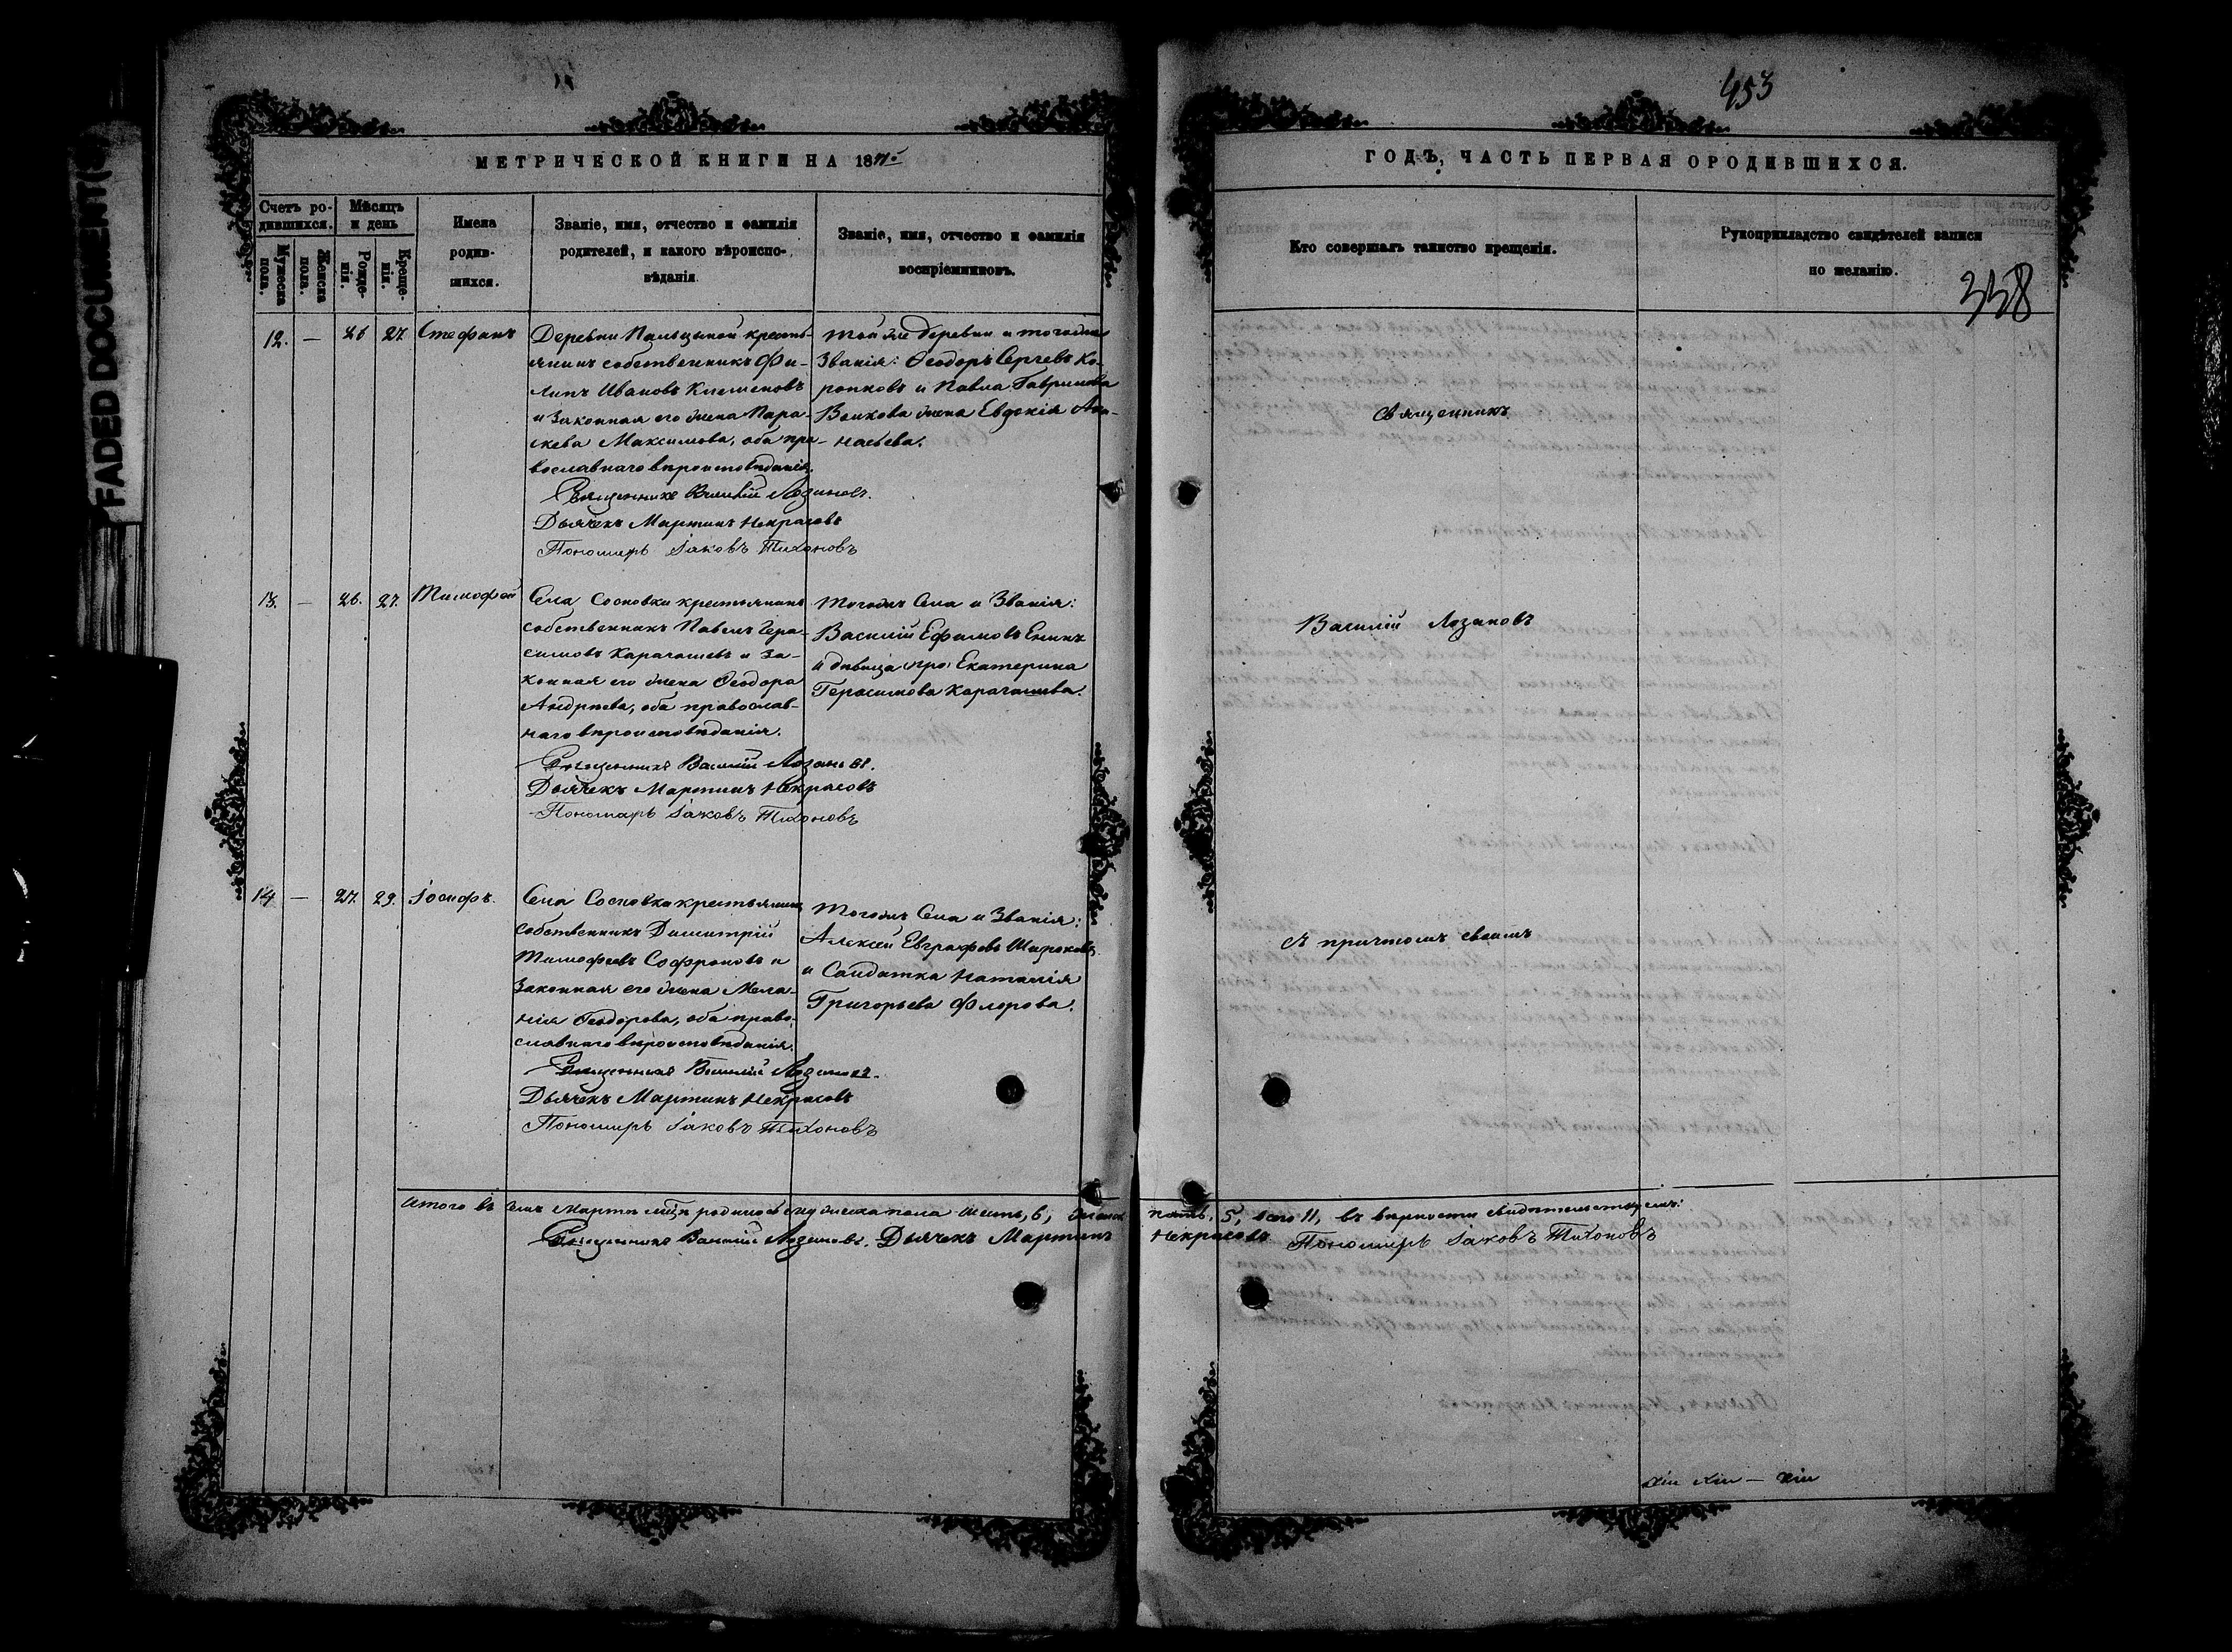 453
МЕТРИЧЕСКОЙ КНИГИ НА 1871
ГОДЪ, ЧАСТЬ ПЕРВАЯ О РОДИВШИХСЯ.
Счетъ ро-
дившихся.
Мужеска пола.
Женска пола.
Мѣсяцъ
и день
Рожде-
нія.
Креще-
нія.
Имена
родив-
шихся.
Званіе, имя, отчество и фамилія
родителей, и какого вѣроиспо-
вѣданія
Званіе, имя, отчество и фамилія
воспріемниковъ.
Кто совершалъ таинство крещенія.
Рукоприкладство свидѣтелей записи
по желанію.
338
12. — 26 27. Стефанъ
Деревни крестья-
янинъ собственникъ Фи-
липъ Ивановъ
и законная его жена Пара-
скева Максимова, оба пра-
вославнаго вѣроисповѣданія.
Священникъ Василій Лозановъ.
Дьячекъ Мартинъ Некрасовъ
Пономарь Іаковъ Тихоновъ
Той же деревни и тогоже
Званія: Ѳеодоръ Сергѣевъ Ко-
ропковъ и Павла Гаврилова
Волкова жена Евдокія Аѳа-
насьева.
Священникъ
13. — 26. 27. Тимофей
Села Сосновки крестьянинъ
собственникъ Павелъ Гера-
симовъ Карагашевъ и за-
конная его жена Ѳеодора
Андреева, оба православ-
наго вѣроисповѣданія.
Священникъ Василій Лозановъ.
Дьячекъ Мартинъ Некрасовъ
Пономарь Іаковъ Тихоновъ
Тогожъ Села и Званія:
Василій Ефимовъ Енинъ
и дѣвица Екатерина
Герасимова Карагашева.
Василій Лозановъ
14 — 27. 29. Іосифъ.
Села Сосновка крестьянинъ
собственникъ Димитрій
Тимофеевъ Софроновъ и
законная его жена Мела-
нія Ѳеодорова, оба право-
славнаго вѣроисповѣданія.
Священникъ Василій Лозановъ.
Дьячекъ Мартинъ Некрасовъ
Пономарь Іаковъ Тихоновъ
Тогожъ Села и Званія:
Алексѣй Евграфовъ Широковъ
и Солдатка Наталія
Григорьева Флорова.
съ причтомъ своимъ
Итого въ семъ Мартѣ мцѣ родилось мужеска пола шесть, 6, женска пять, 5, всего 11, въ вѣрности свидѣтельствуемъ:
Священникъ Василій Лозановъ. Дьячекъ Мартинъ Некрасовъ Пономарь Іаковъ Тихоновъ
FADED DOCUMENT(S)